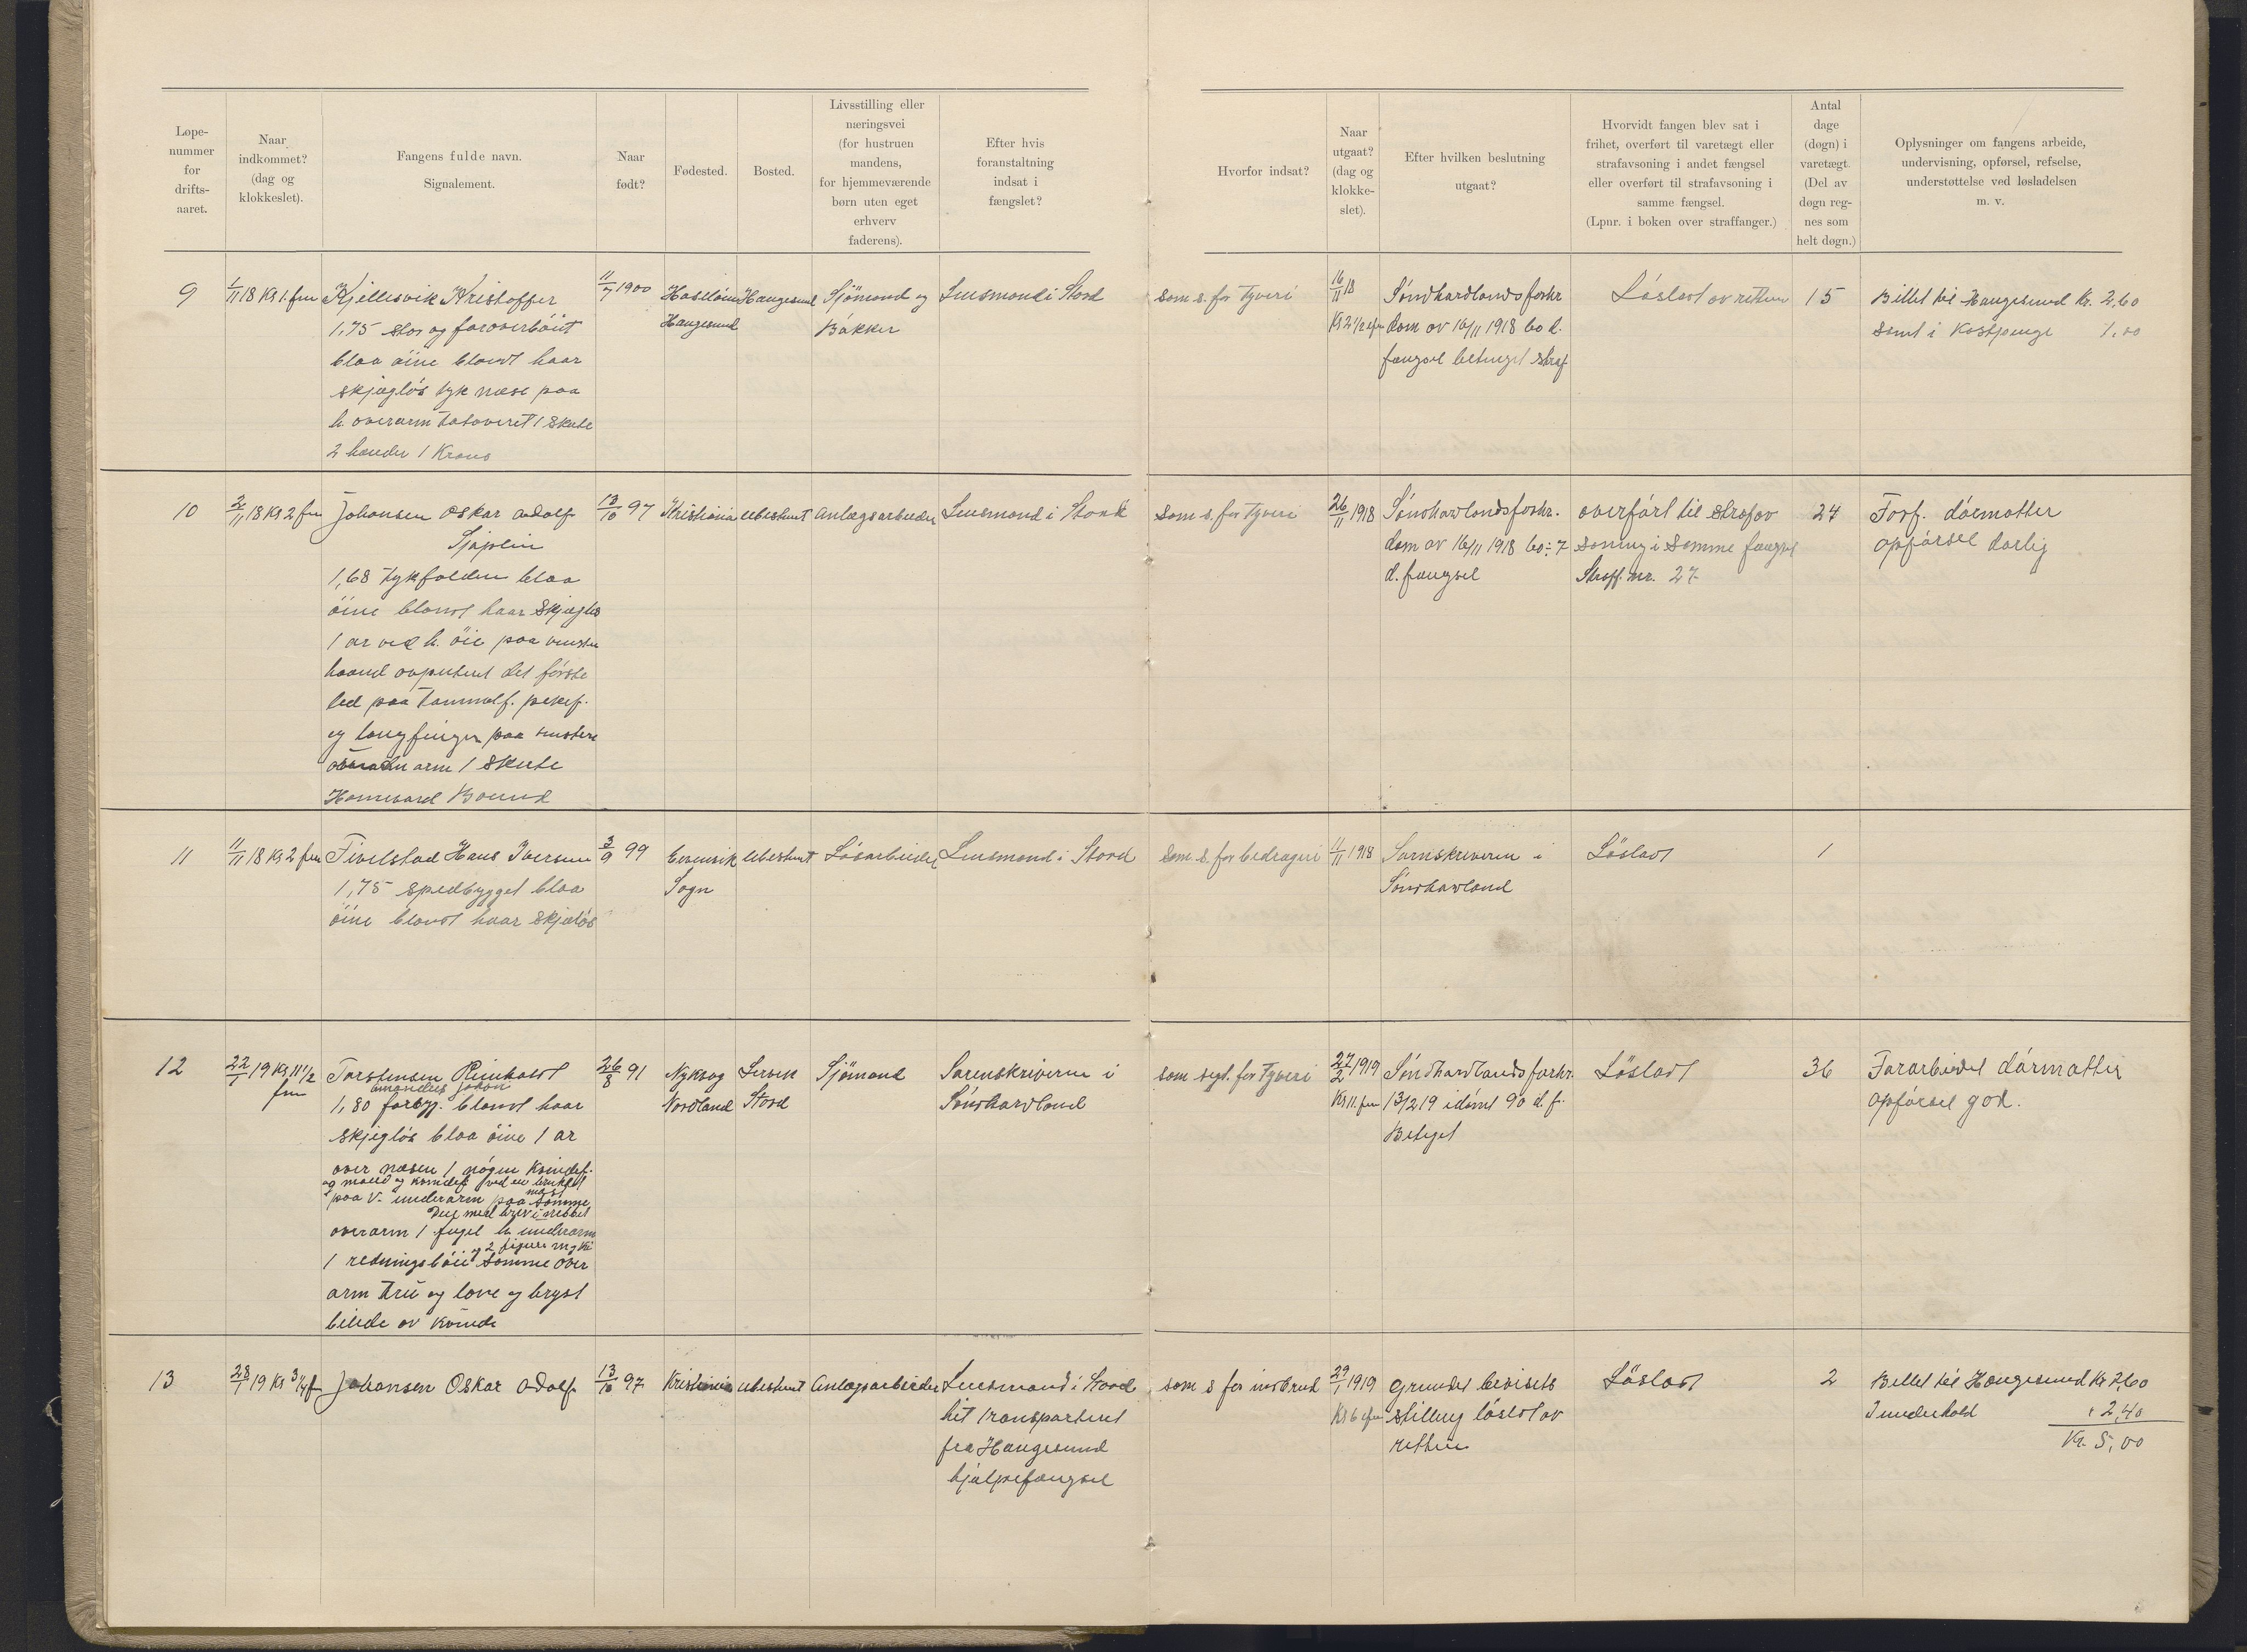 Løpe-
nummer
for
drifts-
aaret.
Naar
indkommet?
(dag og
klokkeslet).
Fangens fulde navn.
Signalement.
Naar
født?
Fødested.
Bosted.
Livsstilling eller
næringsvei
(for hustruen
mandens,
for hjemmeværende
børn uten eget
erhverv
faderens).
Efter hvis
foranstaltning
indsat i
fængslet?
Hvorfor indsat?
Naar
utgaat?
(dag og
klokke-
slet).
Efter hvilken beslutning
utgaat?
Hvorvidt fangen blev sat i
frihet, overført til varetægt eller
strafavsoning i andet fængsel
eller overført til strafavsoning i
samme fængsel.
(Lpnr. i boken over straffanger.)
Antal
dage
(døgn) i
varetægt.
(Del av
døgn reg-
nes som
helt døgn.)
Oplysninger om fangens arbeide,
undervisning, opførsel, refselse,
understøttelse ved løsladelsen
m. v.
9
1/11 18 Kl 1 fm
Kjellesvik Kristoffer
1,75 stor og foroverbøiet
blaa öine blondt haar
skjægløs tyk næse paa
h. overarm tatoveret 1 skute
2 hænder 1 Krans
11/7 1900
Haugesund
Haugesund
Sjömand og
Bakker
Lensmand i Stord
som s. for Tyveri
16/11 18
Kl 2 1/2 efm
Söndhordlands forhr
dom av 16/11 1918 60 d.
fængsel betinget straf
Löslatt av retten
15
Billet til Haugesund Kr. 2,60
samt i Kostpenge 1,00
10
2/11 18 Kl 2 fm
Johansen Oskar Adolf
1,68 tykfalden blaa
öine blondt haar skjægløs
1 ar ved h. öie paa venstre
haand avputert det förste
led paa tommelf. pekef.
og langfinger paa venstre
arm 1 skute
Homevard Bound
13/10 97
Kristiania
Ubestemt
Anlægsarbeider
Lensmand i Stord
som s. for Tyveri
26/11 1918
Söndhordlands forhr.
dom av 16/11 1918 60 ÷ 7
d. fængsel
overfört til strafav
soning i samme fængsel
Straff. nr. 27
24
Forf. dörmatter
opförsel darlig
11
11/11 18 Kl 2 fm
Fivelstad Hans Iversen
1,75 spedbygget blaa
öine blondt haar skjæløs
3/9 99
Sogn
Ubestemt
Lösarbeider
Lensmand i Stord
som s. for bedrageri
11/11 1918
Sorenskriveren i
Söndhordland
Löslatt
1
12
22/1 19 Kl 11 1/2
fm
Torstensen Reinholdt
Johan
1,80 blondt haar
skjegløs blaa öine 1 ar
over næsen 1 nögen Kvindef.
og mand og kvindef ved en
paa v. underarm paa samme
Due med brev i nebbet
overarm 1 fugel h. underarm
og 2 figurer
1 redningsböie samme over
arm tru og love og bryst
bilede av Kvinde
26/8 91
Nyksog
Nordland
Lervik
Stord
Sjömand
Sorenskriveren i
Söndhordland
som sigt. for Tyveri
27/2 1919
Kl 11 fm
Söndhordlands forhr.
13/2 19 idömt 90 d. f.
Betiget
Löslatt
36
Forarbeidet dörmatter
opförsel god.
13
28/1 19 Kl 3 1/4
Johansen Oskar Adolf
13/10 97
Kristiania
Ubestemt
Anlægsarbeider
Lensmand i Stord
hit transporteret
fra Haugesund
hjælpefængsel
som s for indbrud
29/1 1919
Kl 6 efm
Grundet bevisets
stilling löslat av
retten
Löslatt
2
Billet til Haugesund Kr 2,60
I underhold " 2,40
Kr. 5,00